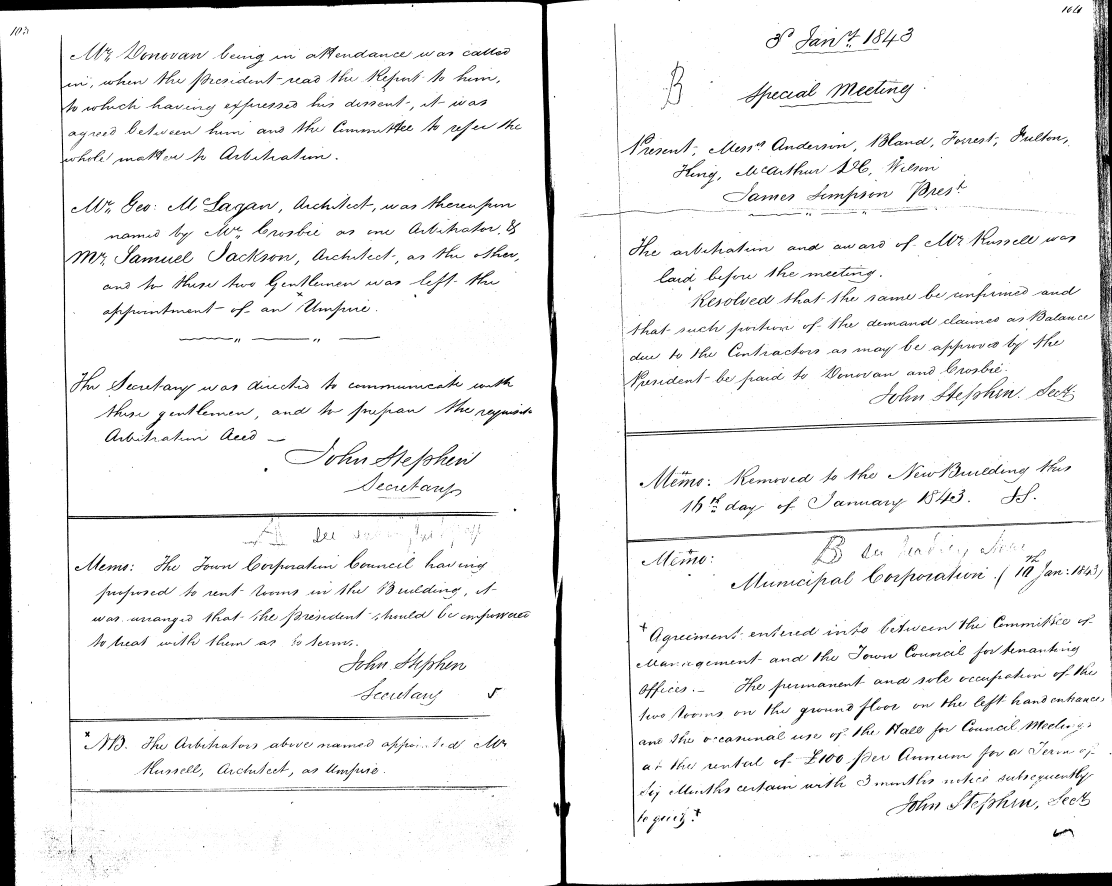 103
Mr. Donovan being in attendance was called
in, when the president read the Report to him,
to which having expressed his dissent, it was
agreed between him and the Committee to refer the
whole matter to Arbitration.
Mr. Geo: McLagan, Architect, was thereupon
named by Mr. Crosbie as one Arbitrator, &
Mr. Samuel Jackson, Architect, as the other,
and to these two Gentlemen was left the
appointment of an × Umpire.
The Secretary was directed to communicate with
these gentlemen, and to prepare the requisite
Arbitration Deed —
John Stephen
Secretary
A see
Memo: The Town Corporation Council having
proposed to rent rooms in the Building, it
was arranged that the president should be empowered
to treat with them as to terms.
John Stephen
Secretary
× NB. The Arbitrators above named appointed Mr
Russell, Architect, as Umpire.
104
3d Jany. 1843
B
Special Meeting.
Present; Messrs Anderson, Bland, Forrest, Fulton,
King, McArthur DC, Wilson
James Simpson Prest
The arbitration and award of Mr Russell was
laid before the meeting.
Resolved that the same be confirmed and
that such portion of the demand claimed as Balance
due to the Contractors as may be approved by the
President be paid to Donovan and Crosbie.
John Stephen. Secy
Memo: Removed to the New Building this
16th day of January 1843. JS.
B see
Memo:
Municipal Corporation. (19th Jan: 1843)
+ Agreement entered into between the Committee of
Management and the Town Council for tenanting
Offices. — The permanent and sole occupation of the
two rooms on the ground floor on the left hand entrance
and the occasional use of the Hall for Council Meetings
at the rental of £100 per Annum for a Term of
Six Months certain with 3 months notice subsequently
to quit. +
John Stephen, Secy